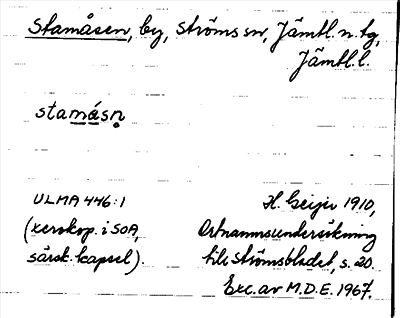 Stamåsen, by, Ströms sn, Jämtl. n. tg,
Jämtl. l.
stamásn̥
ULMA 446:1
(xerokop. i SOA,
särsk. kapsel).
H. Geijer 1910,
Ortnamnsundersökning
till Strömsbladet, s. 20.
Exc. av M.D.E. 1967.